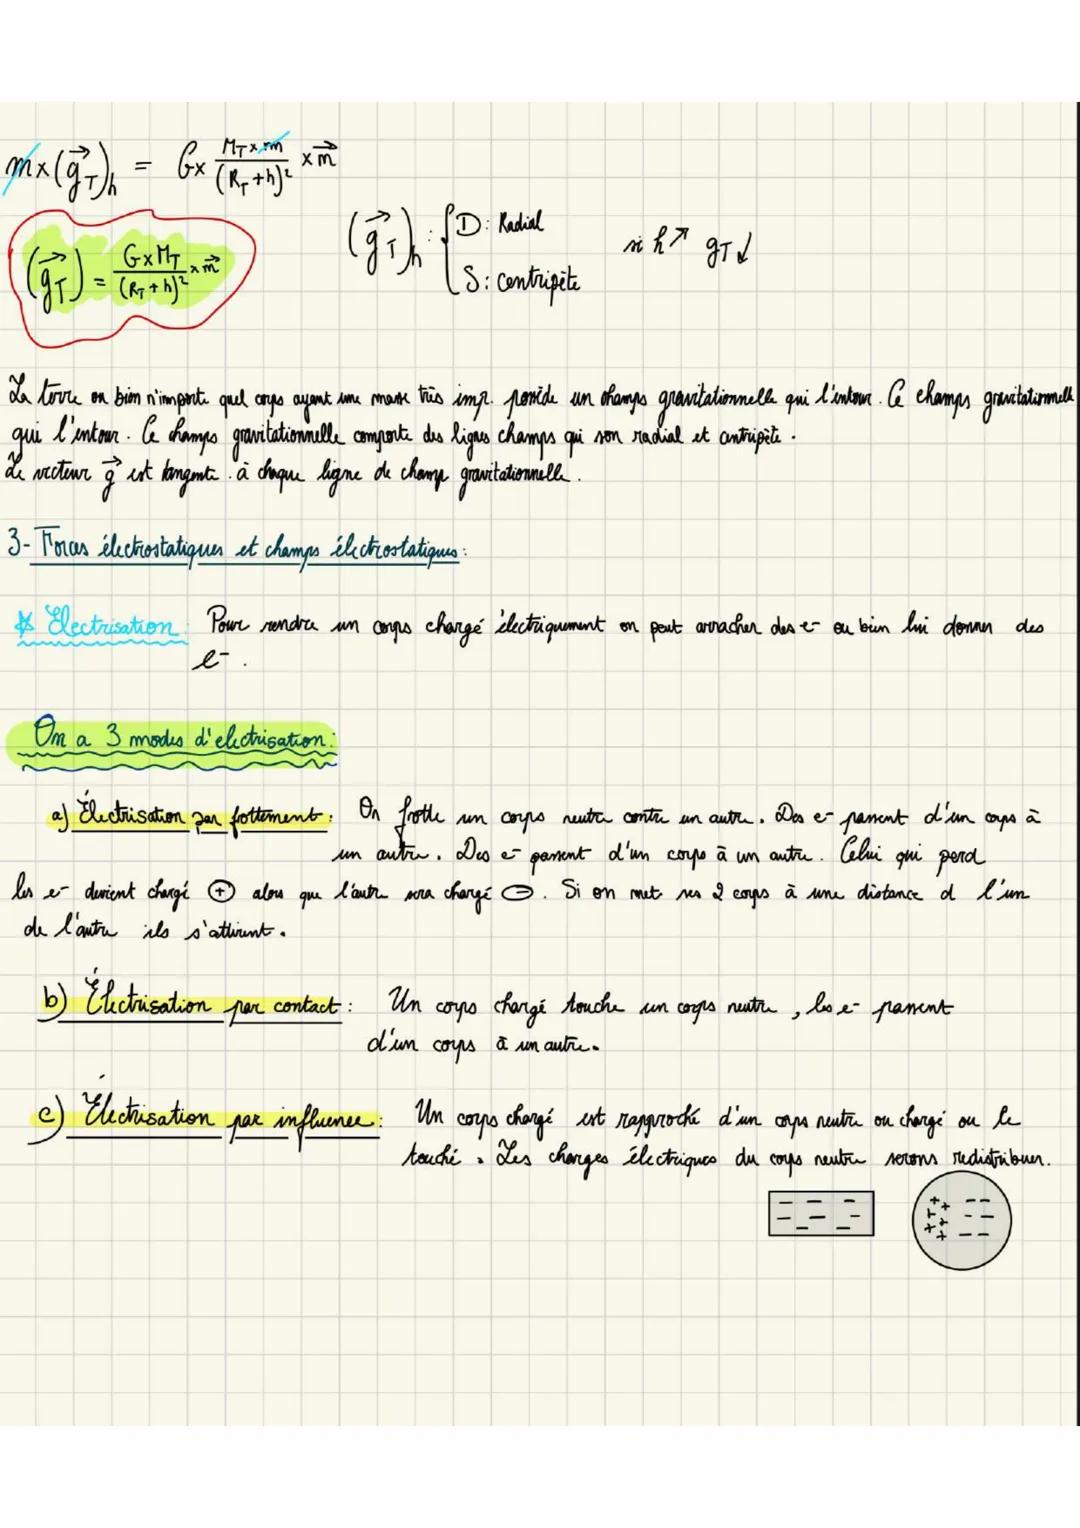 m×(g⃗T)h = G× MT×m/(RT+h)² ×n⃗
(g⃗T) = G×MT/(RT+h)² ×n⃗
(g⃗T)h : { D: Radial
S: centripète
si h↗ gT↓
La terre ou bien n'importe quel corps ayant une masse très imp. possède un champs gravitationnelle qui l'entour. Ce champs gravitationnelle
qui l'entour. Ce champs gravitationnelle comporte des lignes champs qui son radial et centripète.
Le vecteur g⃗ est tangente. à chaque ligne de champ gravitationnelle.
3- Forces électrostatiques et champs électrostatiques:
* Electrisation: Pour rendre un corps chargé électriquement on peut arracher des e- ou bien lui donner des
e-.
On a 3 modes d'electrisation:
a) Électrisation par frottement: On frotte un corps neutre contre un autre. Des e- passent d'un corps à
un autre. Des e- passent d'un corps à un autre. Celui qui perd
les e- devient chargé ⊕ alors que l'autre sera chargé ⊖. Si on met ses 2 corps à une distance d l'un
de l'autre ils s'attirent.
b) Électrisation par contact: Un corps chargé touche un corps neutre, les e- passent
d'un corps à un autre.
c) Électrisation par influence: Un corps chargé est rapproché d'un corps neutre ou chargé ou le
touché. Les charges électriques du corps neutre serons redistribuer.